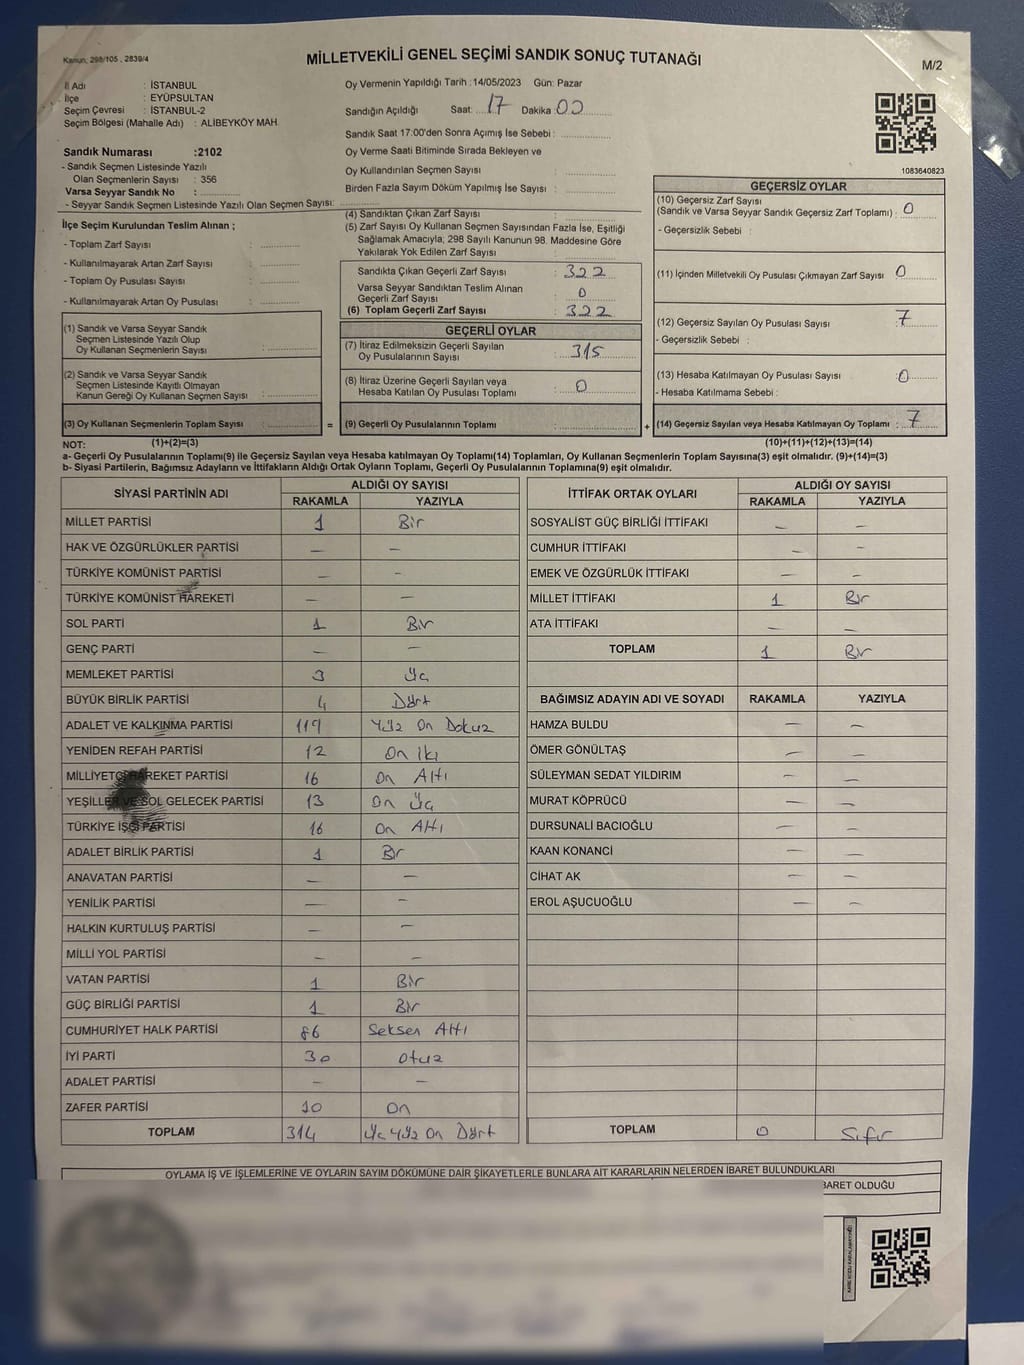 Kanun, 298/105 , 2839/4
MİLLETVEKİLİ GENEL SEÇİMİ SANDIK SONUÇ TUTANAĞI
M/2
İl Adı : İSTANBUL
İlçe : EYÜPSULTAN
Seçim Çevresi : İSTANBUL-2
Seçim Bölgesi (Mahalle Adı) : ALİBEYKÖY MAH.
Sandık Numarası :2102
- Sandık Seçmen Listesinde Yazılı
Olan Seçmenlerin Sayısı : 356
Varsa Seyyar Sandık No :
- Seyyar Sandık Seçmen Listesinde Yazılı Olan Seçmen Sayısı:
Oy Vermenin Yapıldığı Tarih : 14/05/2023 Gün: Pazar
Sandığın Açıldığı Saat: 17 Dakika 00
Sandık Saat 17.00'den Sonra Açımış İse Sebebi :
Oy Verme Saati Bitiminde Sırada Bekleyen ve
Oy Kullandırılan Seçmen Sayısı :
Birden Fazla Sayım Döküm Yapılmış İse Sayısı :
1083640823
İlçe Seçim Kurulundan Teslim Alınan ;
- Toplam Zarf Sayısı :
- Kullanılmayarak Artan Zarf Sayısı :
- Toplam Oy Pusulası Sayısı :
- Kullanılmayarak Artan Oy Pusulası :
(1) Sandık ve Varsa Seyyar Sandık
Seçmen Listesinde Yazılı Olup
Oy Kullanan Seçmenlerin Sayısı :
(2) Sandık ve Varsa Seyyar Sandık
Seçmen Listesinde Kayıtlı Olmayan
Kanun Gereği Oy Kullanan Seçmen Sayısı :
(3) Oy Kullanan Seçmenlerin Toplam Sayısı : =
(4) Sandıktan Çıkan Zarf Sayısı :
(5) Zarf Sayısı Oy Kullanan Seçmen Sayısından Fazla İse, Eşitliği
Sağlamak Amacıyla; 298 Sayılı Kanunun 98. Maddesine Göre
Yakılarak Yok Edilen Zarf Sayısı :
Sandıkta Çıkan Geçerli Zarf Sayısı : 322
Varsa Seyyar Sandıktan Teslim Alınan
Geçerli Zarf Sayısı : 0
(6) Toplam Geçerli Zarf Sayısı : 322
GEÇERLİ OYLAR
(7) İtiraz Edilmeksizin Geçerli Sayılan
Oy Pusulalarının Sayısı : 315
(8) İtiraz Üzerine Geçerli Sayılan veya
Hesaba Katılan Oy Pusulası Toplamı : 0
(9) Geçerli Oy Pusulalarının Toplamı : +
GEÇERSİZ OYLAR
(10) Geçersiz Zarf Sayısı
(Sandık ve Varsa Seyyar Sandık Geçersiz Zarf Toplamı) : 0
- Geçersizlik Sebebi :
(11) İçinden Milletvekili Oy Pusulası Çıkmayan Zarf Sayısı : 0
(12) Geçersiz Sayılan Oy Pusulası Sayısı : 7
- Geçersizlik Sebebi :
(13) Hesaba Katılmayan Oy Pusulası Sayısı : 0
- Hesaba Katılmama Sebebi :
(14) Geçersiz Sayılan veya Hesaba Katılmayan Oy Toplamı : 7
NOT: (1)+(2)=(3) (10)+(11)+(12)+(13)=(14)
a- Geçerli Oy Pusulalarının Toplamı(9) ile Geçersiz Sayılan veya Hesaba katılmayan Oy Toplamı(14) Toplamları, Oy Kullanan Seçmenlerin Toplam Sayısına(3) eşit olmalıdır. (9)+(14)=(3)
b- Siyasi Partilerin, Bağımsız Adayların ve İttifakların Aldığı Ortak Oyların Toplamı, Geçerli Oy Pusulalarının Toplamına(9) eşit olmalıdır.
SİYASİ PARTİNİN ADI ALDIĞI OY SAYISI
RAKAMLA YAZIYLA
MİLLET PARTİSİ 1 Bir
HAK VE ÖZGÜRLÜKLER PARTİSİ — —
TÜRKİYE KOMÜNİST PARTİSİ — —
TÜRKİYE KOMÜNİST HAREKETİ — —
SOL PARTİ 1 Bir
GENÇ PARTİ — —
MEMLEKET PARTİSİ 3 Üç
BÜYÜK BİRLİK PARTİSİ 4 Dört
ADALET VE KALKINMA PARTİSİ 119 Yüz On Dokuz
YENİDEN REFAH PARTİSİ 12 On İki
MİLLİYETÇİ HAREKET PARTİSİ 16 On Altı
YEŞİLLER VE SOL GELECEK PARTİSİ 13 On Üç
TÜRKİYE İŞÇİ PARTİSİ 16 On Altı
ADALET BİRLİK PARTİSİ 1 Bir
ANAVATAN PARTİSİ — —
YENİLİK PARTİSİ — —
HALKIN KURTULUŞ PARTİSİ — —
MİLLİ YOL PARTİSİ — —
VATAN PARTİSİ 1 Bir
GÜÇ BİRLİĞİ PARTİSİ 1 Bir
CUMHURİYET HALK PARTİSİ 86 Seksen Altı
İYİ PARTİ 30 Otuz
ADALET PARTİSİ — —
ZAFER PARTİSİ 10 On
TOPLAM 314 Üç Yüz On Dört
İTTİFAK ORTAK OYLARI ALDIĞI OY SAYISI
RAKAMLA YAZIYLA
SOSYALİST GÜÇ BİRLİĞİ İTTİFAKI — —
CUMHUR İTTİFAKI — —
EMEK VE ÖZGÜRLÜK İTTİFAKI — —
MİLLET İTTİFAKI 1 Bir
ATA İTTİFAKI — —
TOPLAM 1 Bir
BAĞIMSIZ ADAYIN ADI VE SOYADI RAKAMLA YAZIYLA
HAMZA BULDU — —
ÖMER GÖNÜLTAŞ — —
SÜLEYMAN SEDAT YILDIRIM — —
MURAT KÖPRÜCÜ — —
DURSUNALİ BACIOĞLU — —
KAAN KONANCİ — —
CİHAT AK — —
EROL AŞUCUOĞLU — —
TOPLAM 0 Sıfır
OYLAMA İŞ VE İŞLEMLERİNE VE OYLARIN SAYIM DÖKÜMÜNE DAİR ŞİKAYETLERLE BUNLARA AİT KARARLARIN NELERDEN İBARET BULUNDUKLARI
BARET OLDUĞU